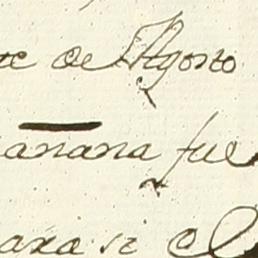 te de Agosto
anana fue
para si el